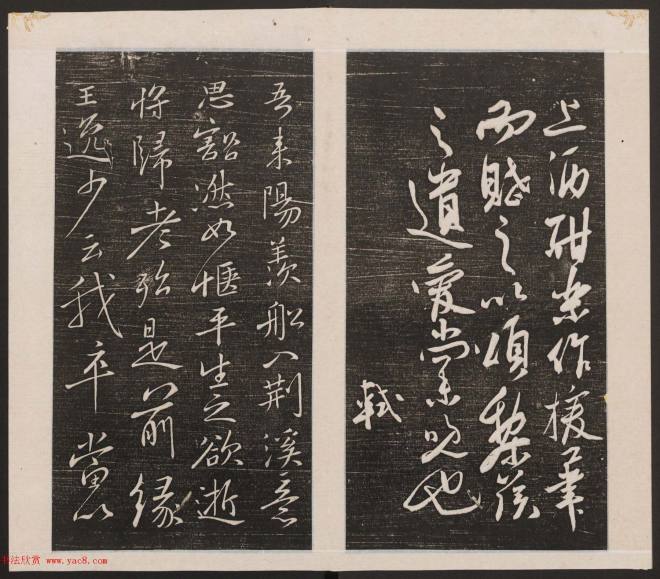 上酒酣樂作援筆
而賦之以頌黎侯
之遺愛尚未晚也
軾
吾來陽羨船入荊溪意
思豁然如愜平生之欲逝
将歸老殆是前緣
王逸少云我卒當以
书法欣赏 www.yac8.com